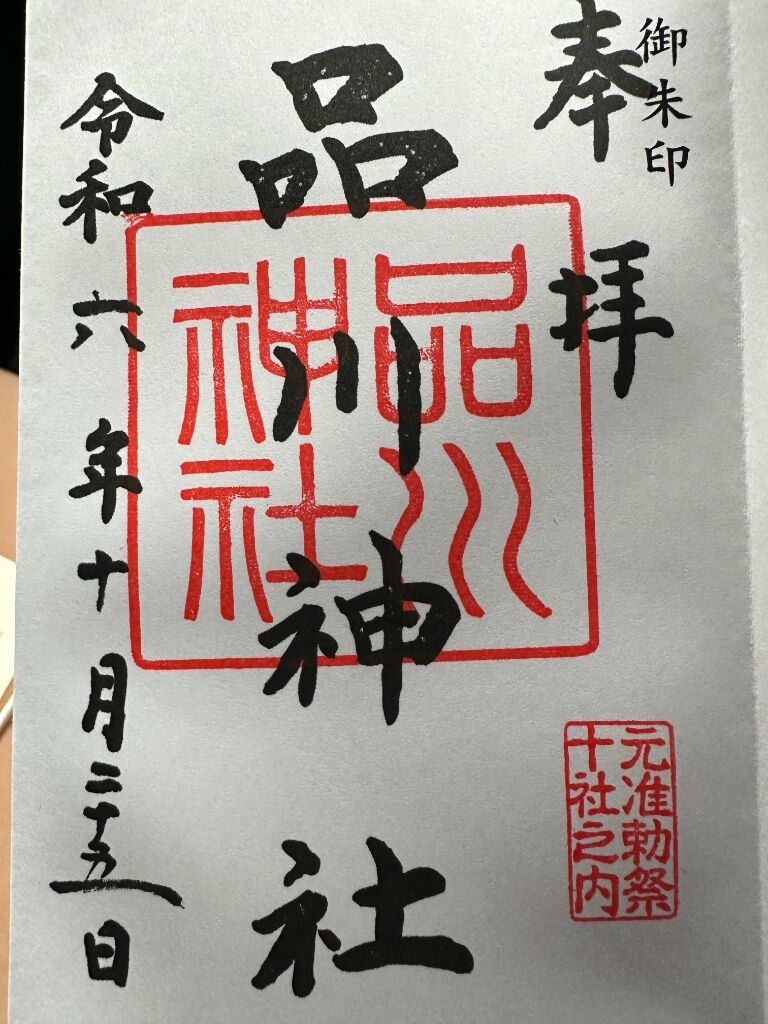 御朱印
奉拝
品川神社
品川
神社
元准勅祭
十社之内
令和六年十月二十五日